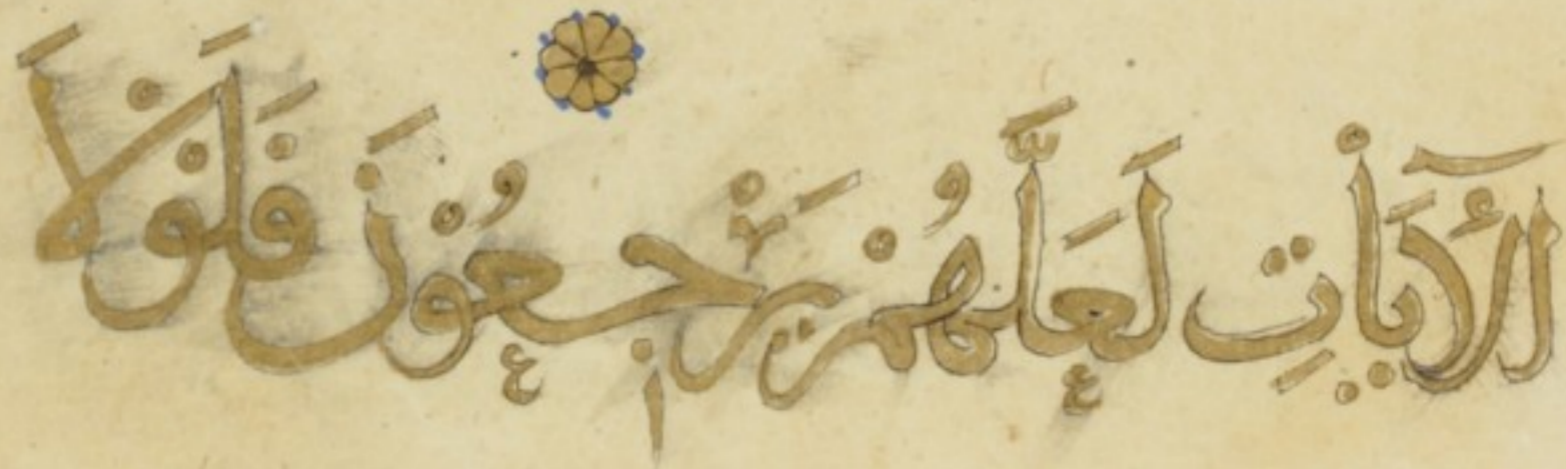 الْآيَاتِ لَعَلَّهُمْ يَرْجِعُونَ فَلَوْلَا